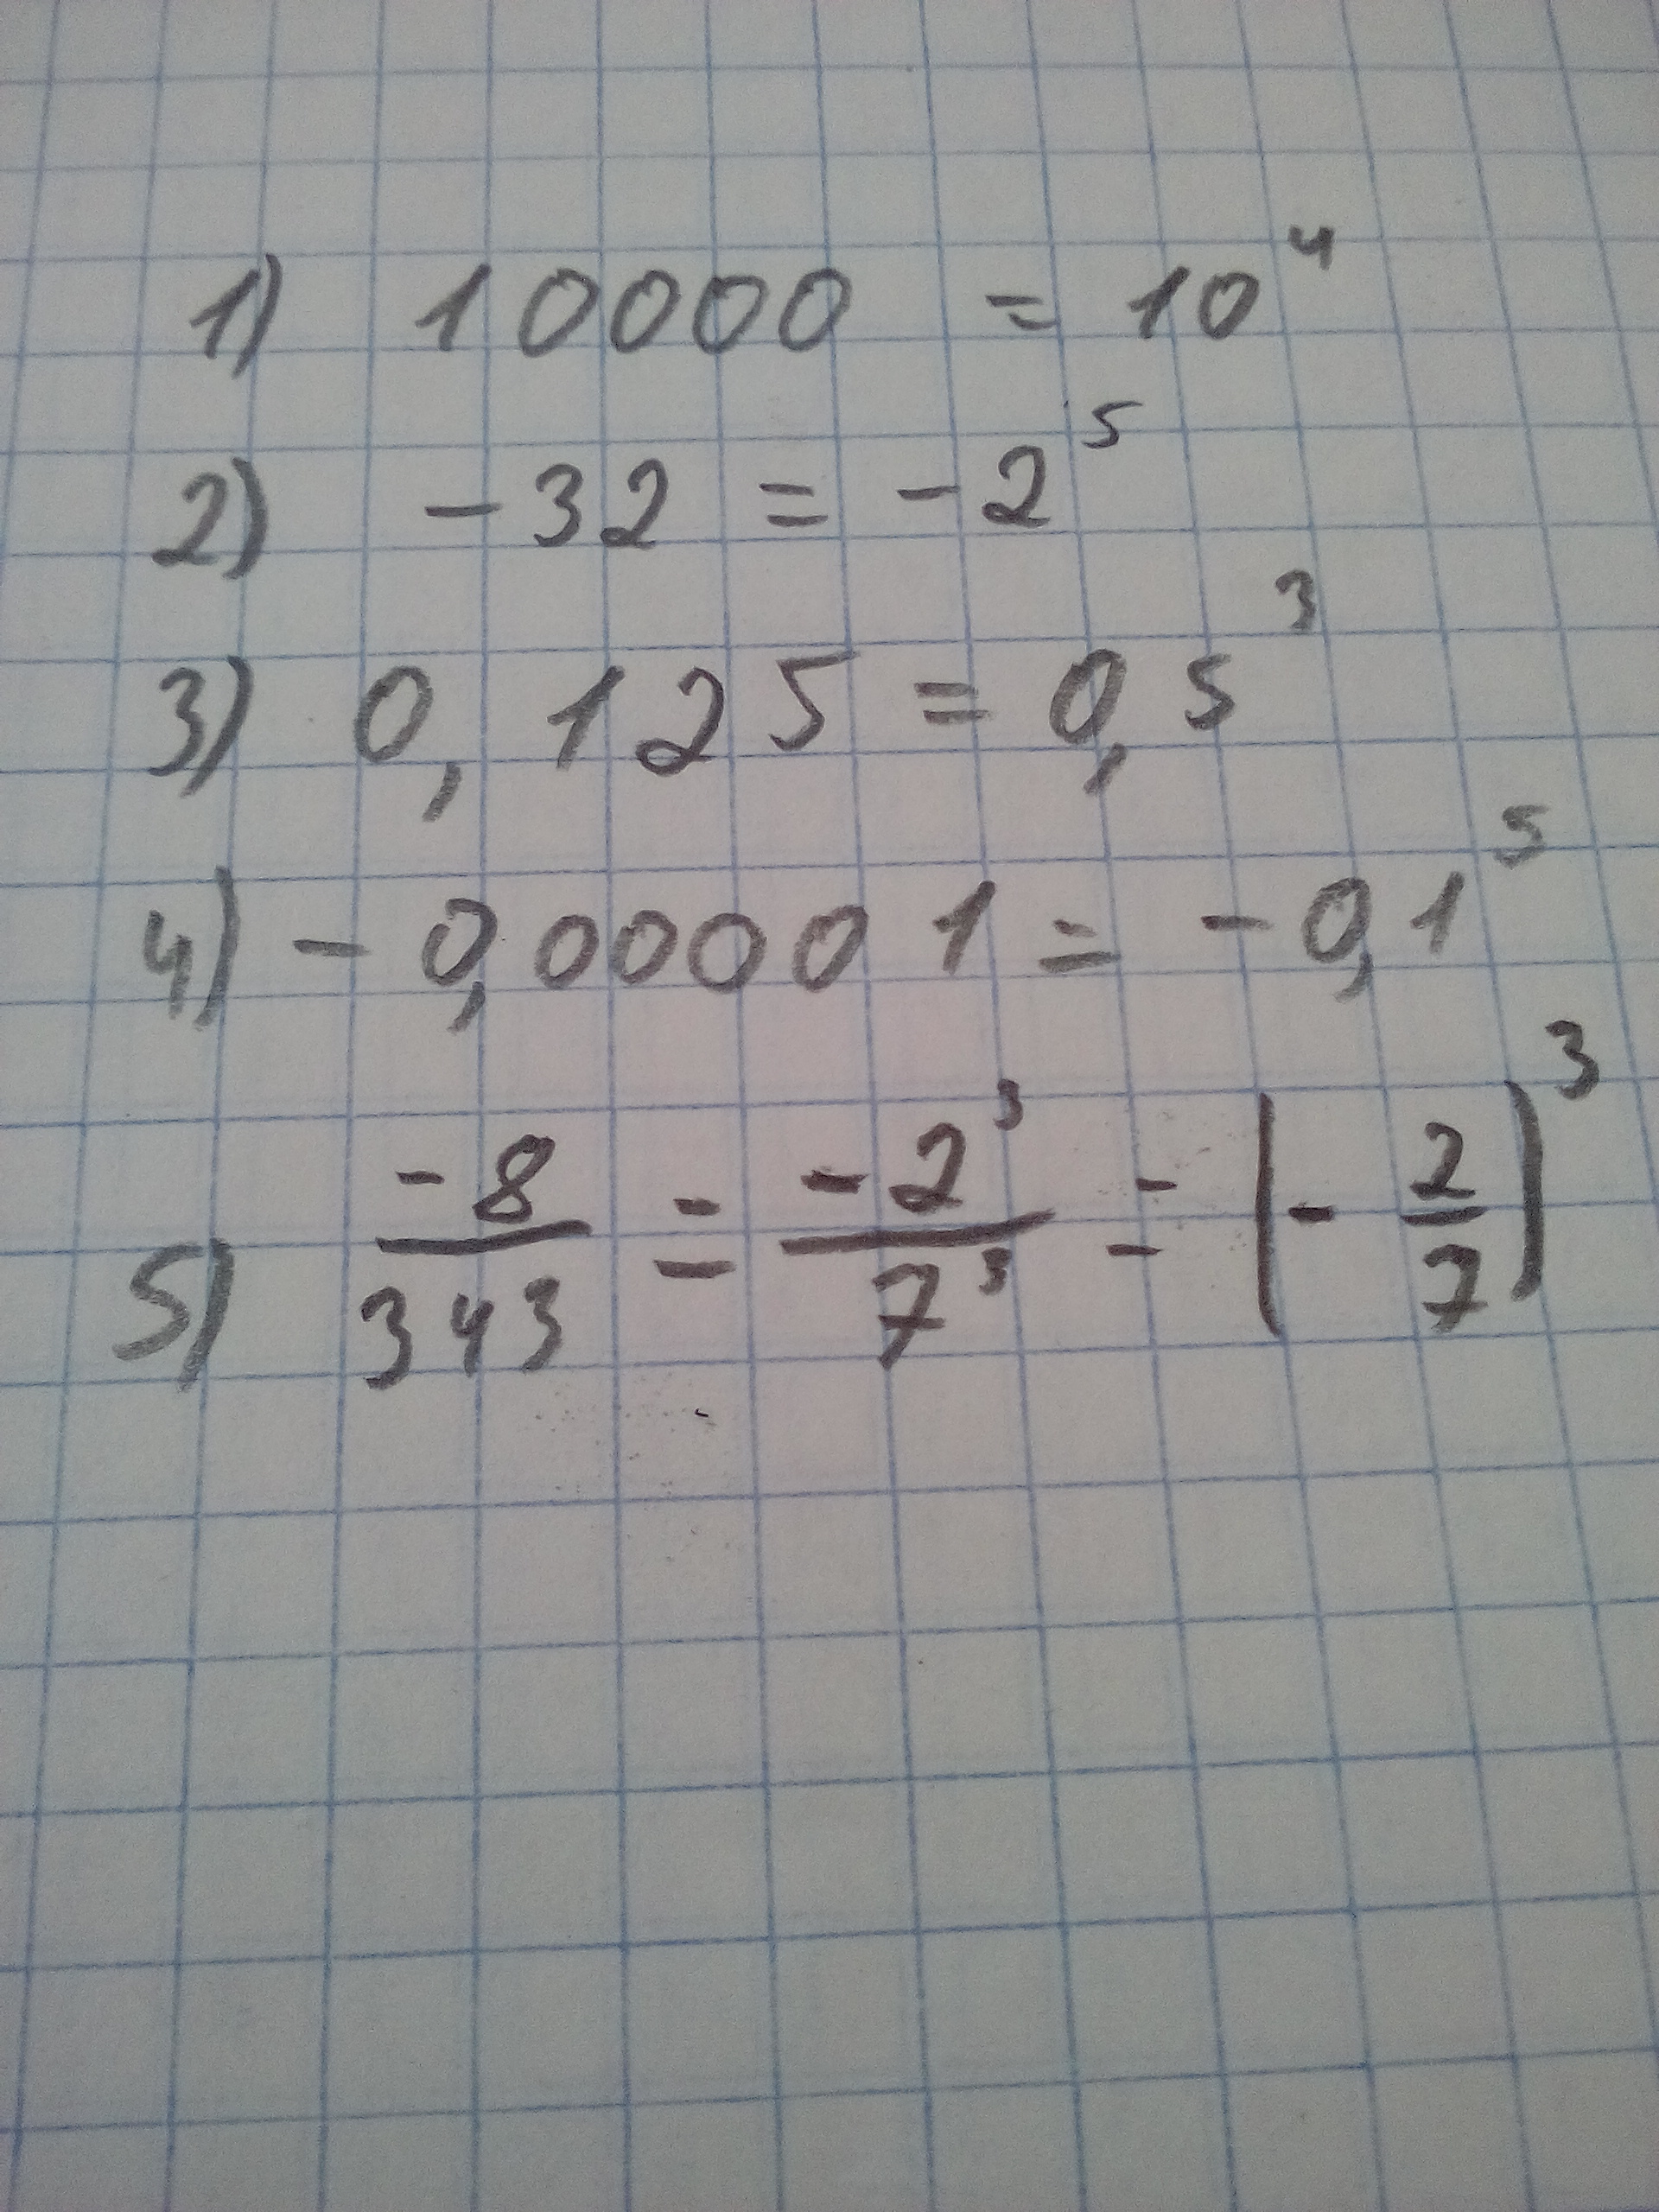 1) 10000 = 10⁴
2) -32 = -2⁵
3) 0,125 = 0,5³
4) -0,00001 = -0,1⁵
5) -8/343 = -2³/7³ = (-2/7)³